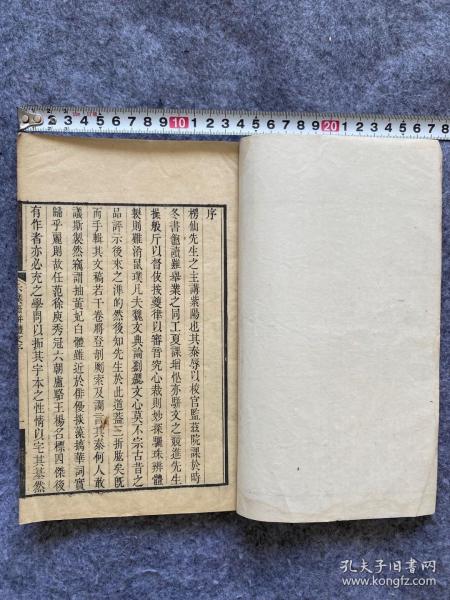 序
楞仙先生之主講紫陽也其泰辱以校官監茲院課於時
冬書飽讀雖舉業之同工夏課增 亦騈文之競進先生
操般斤以督伎挾夔律以審音究心裁則妙探驪珠辨體
製則雖淆鼠璞凡夫魏文典論劉勰文心莫不宗古昔之
品評示後來之準的然後知先生於此道蓋三折肱矣旣
而手輯其文稿若干卷將登剞劂索及 言其泰何人敢
議斯製然竊謂抽黃妃白體雖近於俳優摛華詞實
歸乎麗則故任范徐庾秀冠六朝盧駱王楊名標四傑後
有作者亦必充之學問以拓其宇本之性情以宅其基然
2 3 4 5 6 7 8 9 10 1 2 3 4 5 6 7 8 9 20 1 2 3 4 5 6 7 8
孔夫子旧书网
www.kongfz.com